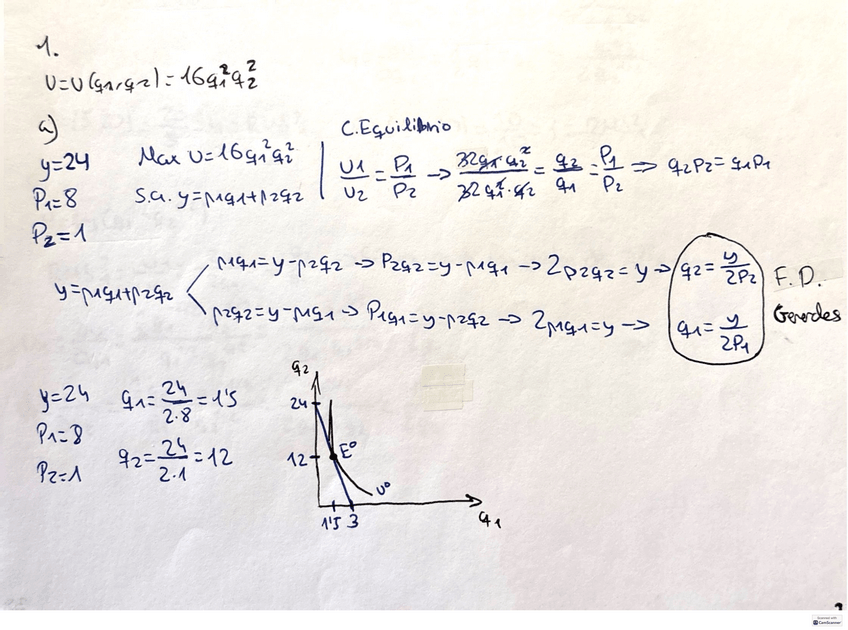 1.
U=U(q1,q2)=16q1²q2²
a)
y=24
P1=8
P2=1
Max U=16q1²q2²
S.a. y=p1q1+p2q2
C.Equilibrio
U1/U2 = P1/P2 → 32q1·q2²/32q1²·q2 = q2/q1 = P1/P2 ⇒ q2P2=q1P1
y=p1q1+p2q2
p1q1=y-p2q2 → P2q2=y-p1q1 → 2p2q2=y → q2=y/2P2
p2q2=y-p1q1 → P1q1=y-p2q2 → 2p1q1=y → q1=y/2P1
F.D.
Generales
y=24
P1=8
P2=1
q1=24/2·8=1'5
q2=24/2·1=12
q2
24
12
E⁰
U⁰
1'5 3
q1
Scanned with
CamScanner